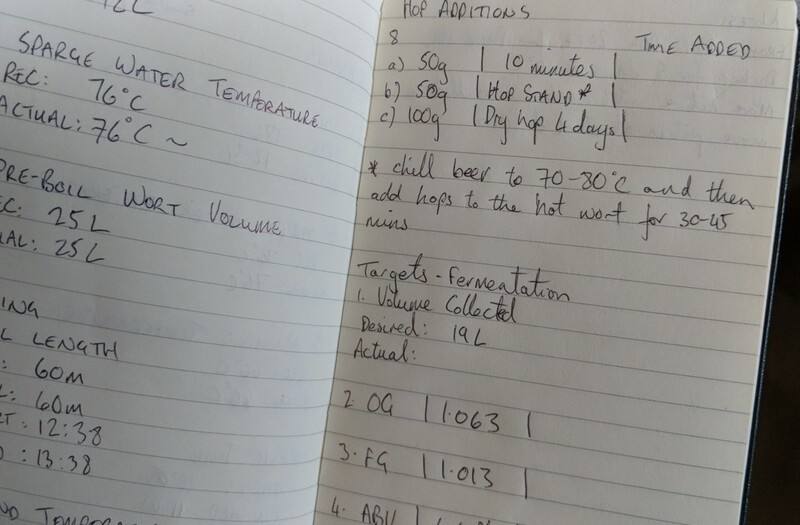 12L
SPARGE WATER TEMPERATURE
REC: 76°C
ACTUAL: 76°C ~
PRE-BOIL WORT VOLUME
EC: 25L
UAL: 25L
ING
L LENGTH
: 60M
L: 60M
RT: 12:38
D: 13:38
HOP ADDITIONS
8 TIME ADDED
a) 50g | 10 minutes |
b) 50g | HOP STAND* |
c) 100g | Dry hop 4 days |
* chill beer to 70-80°C and then
add hops to the hot wort for 30-45
mins
Targets - Fermeatation
1. Volume Collected
Desired: 19L
Actual:
2. OG | 1.063 |
3. FG | 1.013 |
4. ABV |